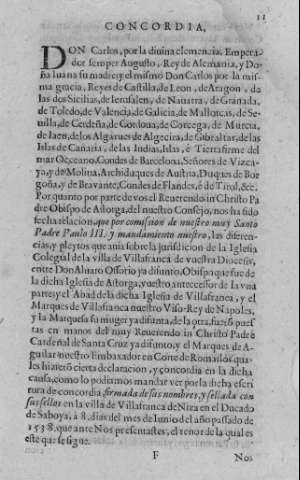 11
CONCORDIA,
DON Carlos, por la diuina clemencia, Empera-
dor semper Augusto, Rey de Alemania, y Do-
ña Iuana su madre y el mismo Don Carlos por la mis-
ma gracia, Reyes de Castilla, de Leon, de Aragon, da
las dos Sicilias, de Ierusalen, de Nauarra, de Granada,
de Toledo, de Valencia, de Galicia, de Mallorcas, de Se-
uilla, de Cerdeña, de Cordoua, de Corcega, de Murcia,
de Iaen, de los Algarues de Algecira, de Gibraltar, de las
Islas de Canaria, de las Indias, Islas, è Tierrafirme del
mar Occeano, Condes de Barcelona, Señores de Vizca-
ya, y de Molina, Archiduques de Austria, Duques de Bor-
goña, y de Brauante, Condes de Flandes, è de Tirol, &c.
Por quanto por parte de vos el Reuerendo in Christo Pa
dre Obispo de Astorga, del nuestro Consejo, nos ha sido
fecha relacion, que por comission de nuestro muy Santo
Padre Paulo III. y mandamiento nuestro, las diferen-
cias, y pleytos que auia sobre la jurisdicion de la Iglesia
Colegial de la villa de Villafranca de vuestra Diocesis,
entre Don Aluaro Ossorio ya difunto, Obispo que fue de
la dicha Iglesia de Astorga, vuestro antecessor de la vna
parte, y el Abad de la dicha Iglesia de Villafranca, y el
Marques de Villafranca nuestro Viso-Rey de Napoles,
y la Marquesa su muger ya difunta, de la otra, fuerõ pues
tas en manos del muy Reuerendo in Christo Padre
Cardenal de Santa Cruz ya difunto, y el Marques de A-
guilar nuestro Embaxador en Corte de Roma, los qua-
les hizierõ cierta declaracion, y concordia en la dicha
causa, como lo podiamos mandar ver por la dicha escri
tura de concordia firmada de sus nombres, y sellada con
sus sellos en la villa de Villafranca de Niza en el Ducado
de Saboya, à 8. dias del mes de Iunio del año passado de
1538. que ante Nos presentastes, el tenor de la qual es
este que se sigue.
F
Nos